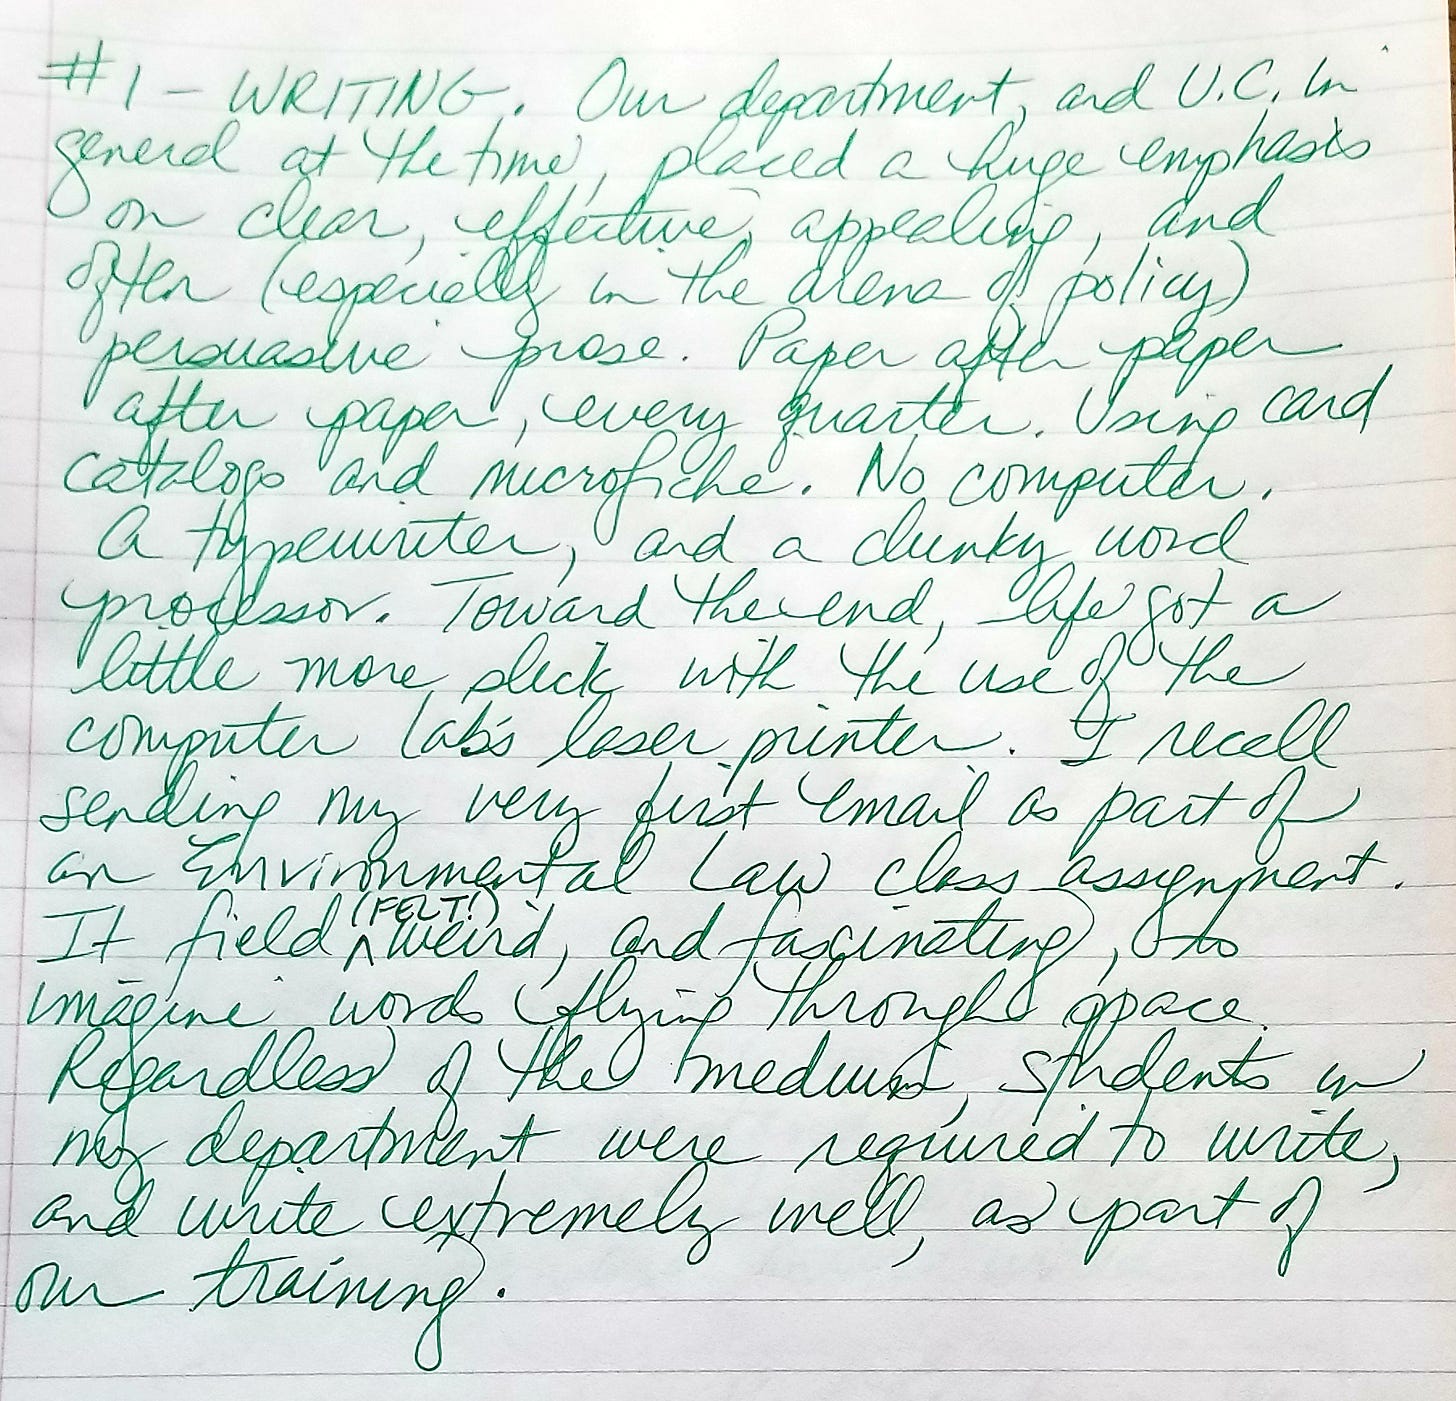 #1 – WRITING. Our department, and U.C. in
general at the time, placed a huge emphasis
on clear, effective, appealing, and
often (especially in the arena of policy)
persuasive prose. Paper after paper
after paper, every quarter. Using card
catalogs and microfiche. No computer.
A typewriter, and a clunky word
processor. Toward the end, life got a
little more sleek with the use of the
computer lab's laser printer. I recall
sending my very first email as part of
an Environmental Law class assignment.
It field (FELT!) weird, and fascinating, to
imagine words flying through space.
Regardless of the medium, students in
my department were required to write,
and write extremely well, as part of
our training.